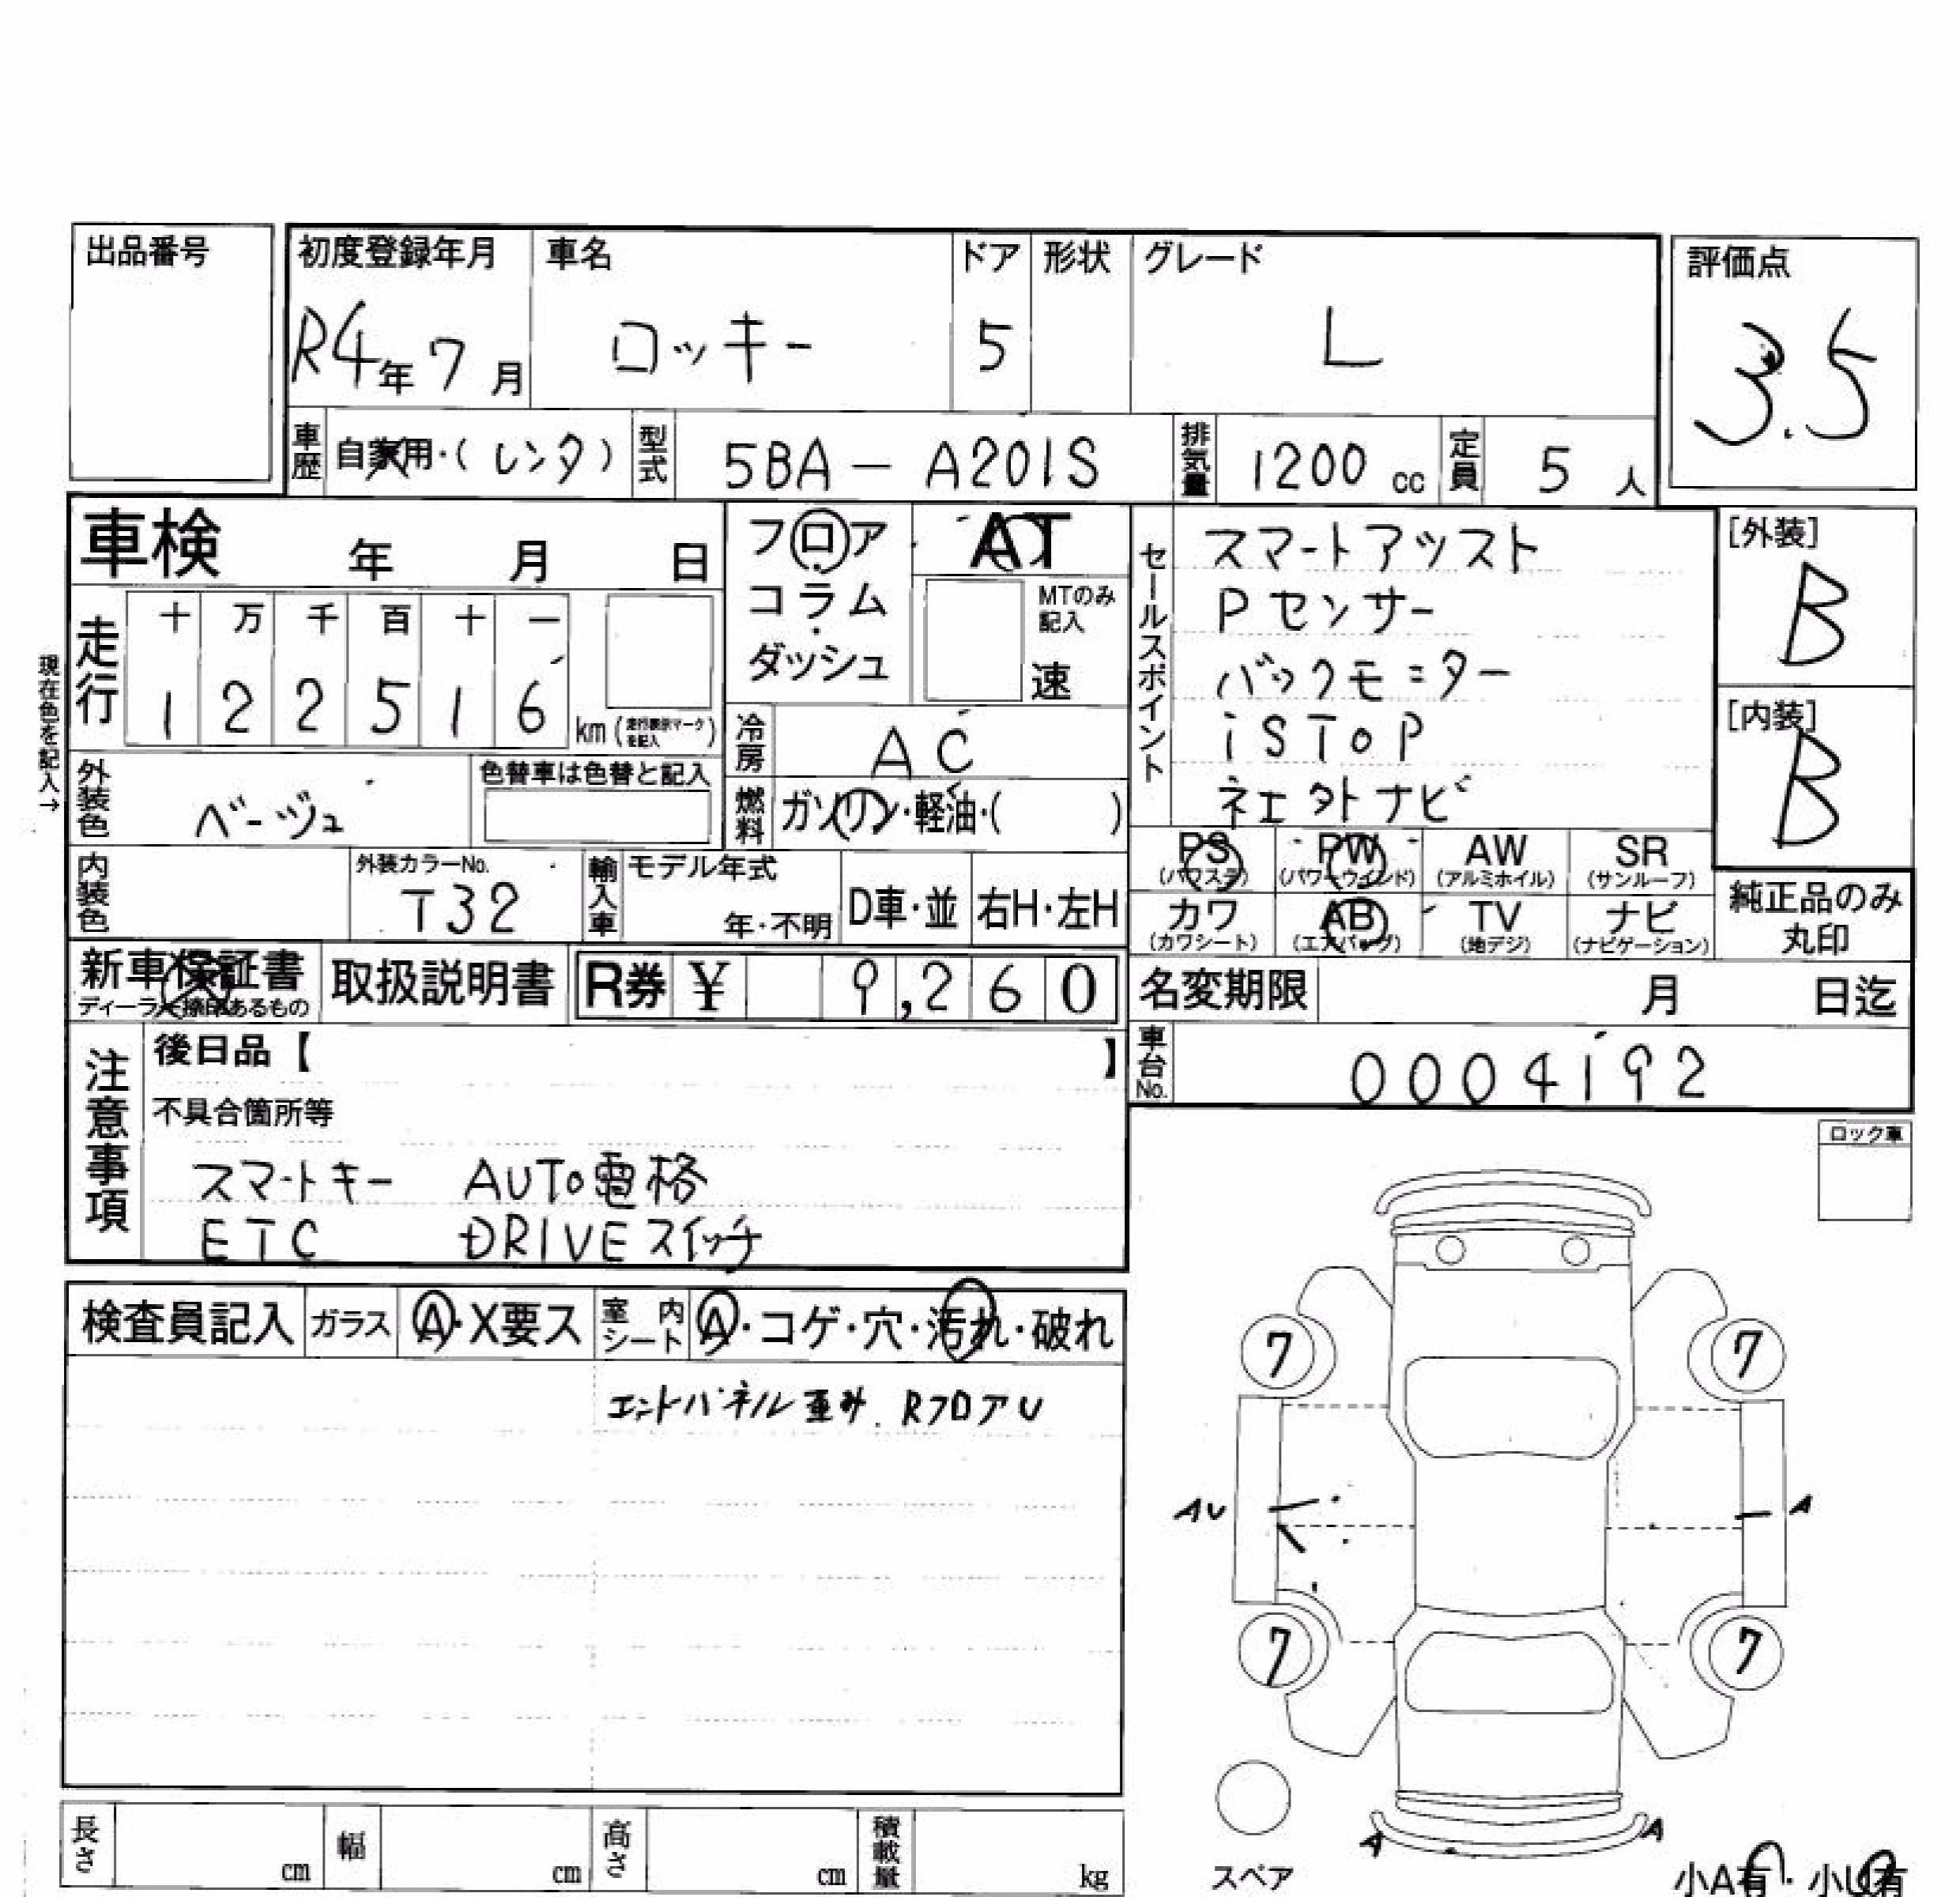 出品番号
初度登録年月 車名 ドア 形状 グレード 評価点
R4年7月 ロッキー 5 L 3.5
車歴 自家用・(レンタ) 型式 5BA-A201S 排気量 1200cc 定員 5人
車検 年 月 日
フロア・コラム・ダッシュ
AT
MTのみ記入
速
走行 十 万 千 百 十 一
1 2 2 5 1 6 km (走行表示マークを記入)
現在色を記入→
冷房 AC
燃料 ガソリン・軽油・( )
外装色 ベージュ 色替車は色替と記入
内装色 外装カラーNo. T32 輸入車 モデル年式 年・不明 D車・並 右H・左H
セールスポイント
スマートアシスト
Pセンサー
バックモニター
iSTOP
ネエ外ナビ
[外装] B
[内装] B
PS (パワステ) PW (パワーウインド) AW (アルミホイル) SR (サンルーフ)
カワ (カワシート) AB (エアバッグ) TV (地デジ) ナビ (ナビゲーション)
純正品のみ丸印
新車保証書 ディーラー捺印あるもの 取扱説明書 R券 ¥ 9,260
名変期限 月 日迄
車台No. 0004192
注意事項
後日品【 】
不具合箇所等
スマートキー AUTo電格
ETC DRIVEスイッチ
ロック車
検査員記入 ガラス A・X要ス 室内シート A・コゲ・穴・汚れ・破れ
エンドパネル歪み. RフロアU
7 7
AU A
7 7
スペア
A A
小A有・小U有
長さ cm 幅 cm 高さ cm 積載量 kg